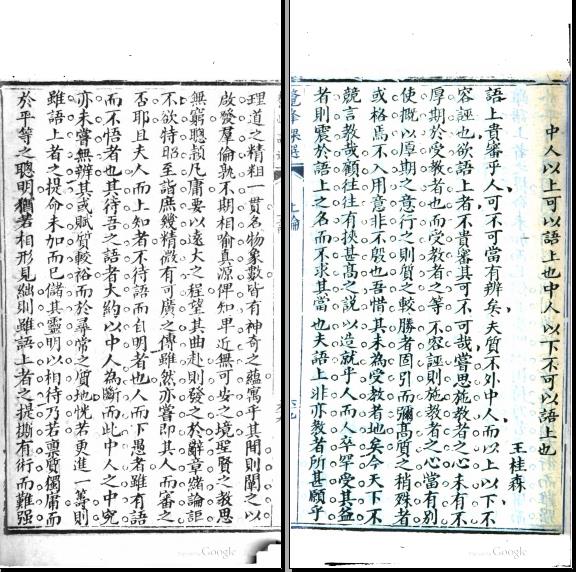 中人以上可以語上也中人以下不可以語上也
王桂森
語上貴審乎人可不可當有辨矣夫質不外中人而以上以下不
容誣也欲語上者不貴審其可不可哉嘗思施教者之心未有不
厚期於受教者也而受教者之等不容誣則施教者之心當有別
使概以厚期之意行之則質之較勝者固引而彌高質之稍殊者
或格焉不入用意非不殷也吾惜其未為受教者地矣今天下不
競言教哉顧往往有挾甚高之說以造就乎人而人卒罕受其益
者則震於語上之名而不求其當也夫語上非亦教者所甚願乎
理道之精粗一貫名物象數皆有神奇之蘊寓乎其間則闡之以
啟發羣倫孰不期相喻真源俾知卑近無可安之境聖賢之教思
無窮聰穎凡庸要以遠大之程望其曲赴則發之於辭章緒論詎
不欲特昭至詣庶幾精微有可廣之傳雖然亦嘗即其人而審之
否耶且夫人而上知者不待語而自明者也人而下愚者雖有語
而不悟者也其待吾之語者大約以中人為斷而此中人之中究
亦未嘗無辨其或賦質較裕而於尋常之質地恍若更進一籌則
雖語上者之提命未加而已儲其靈明以相待乃若稟質獨庸而
於平等之聰明猶若相形見絀則雖語上者之提撕有術而難强
Google
Google